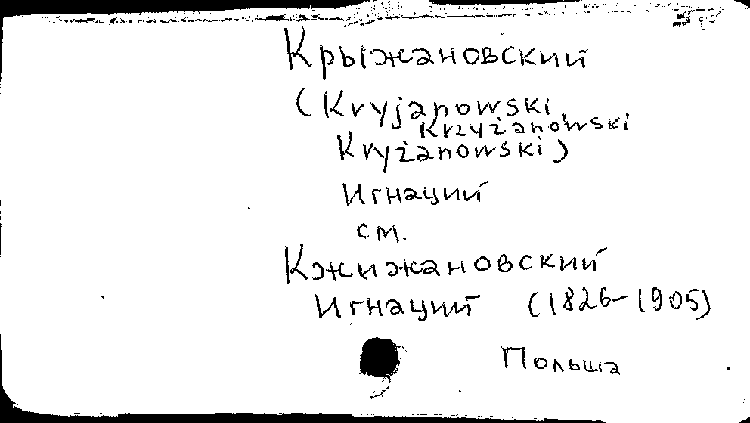 Крыжановский
(Kryjanowski,
Krzyżanowski
Kryżanowski)
Игнаций
см.
Кжижановский
Игнаций (1826-1905)
Польша